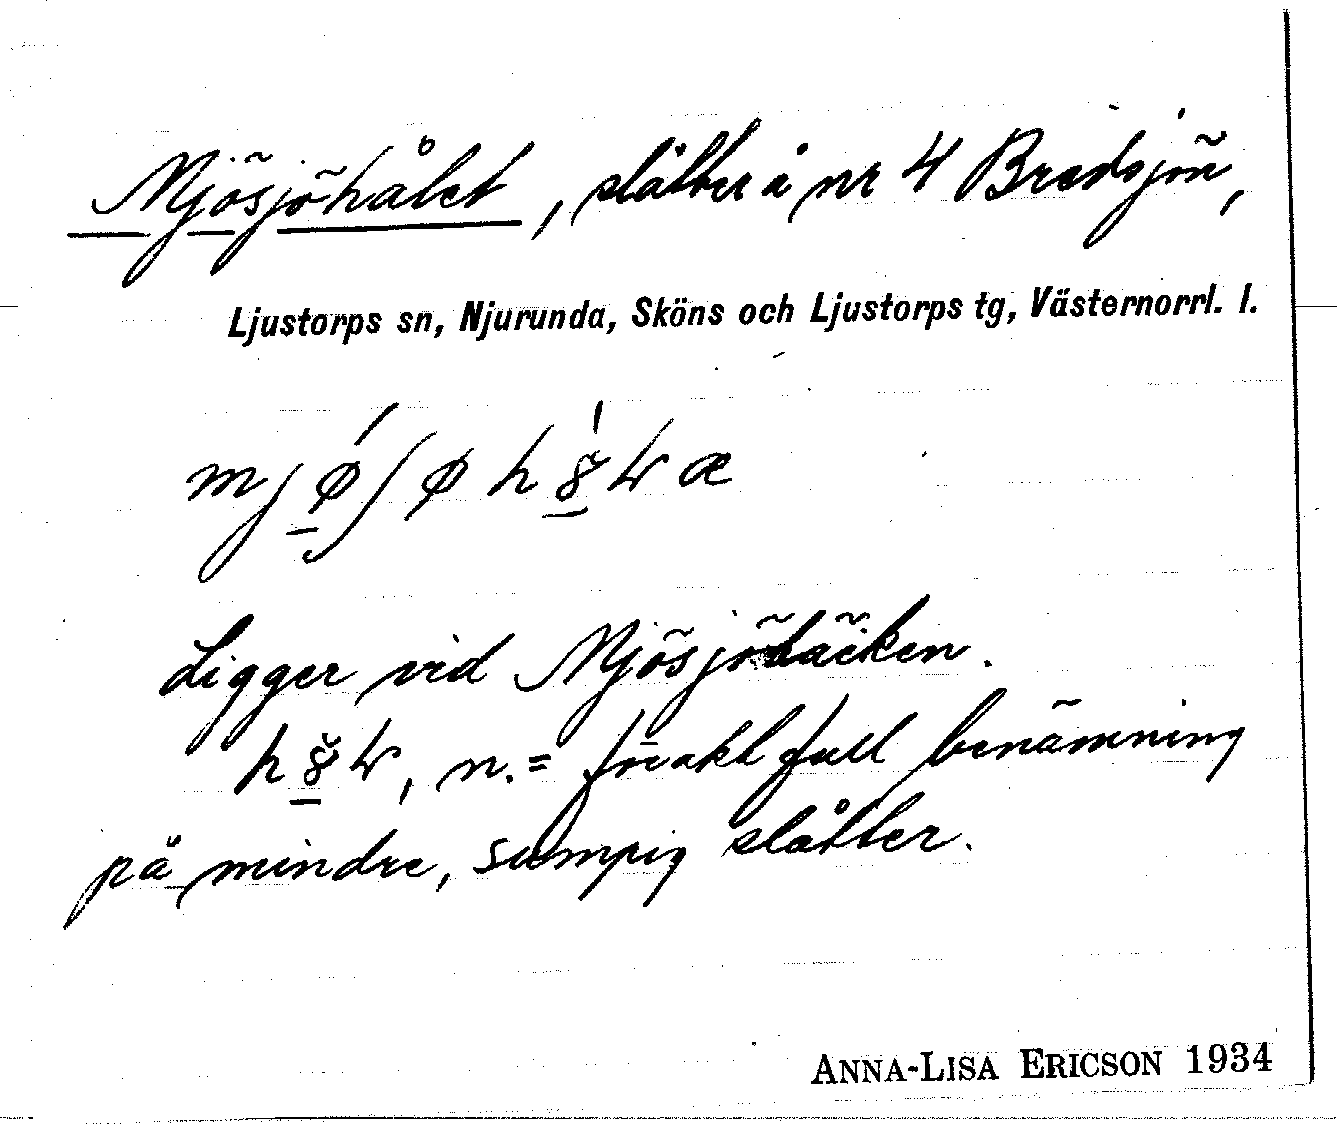 Mjösjöhålet, slåtter å nr 4 Bredsjön,
Ljustorps sn, Njurunda, Sköns och Ljustorps tg, Västernorrl. l.
Ligger vid Mjösjöbäcken.
n. = föraktfull benämning
på mindre, sumpig slåtter.
ANNA-LISA ERICSON 1934